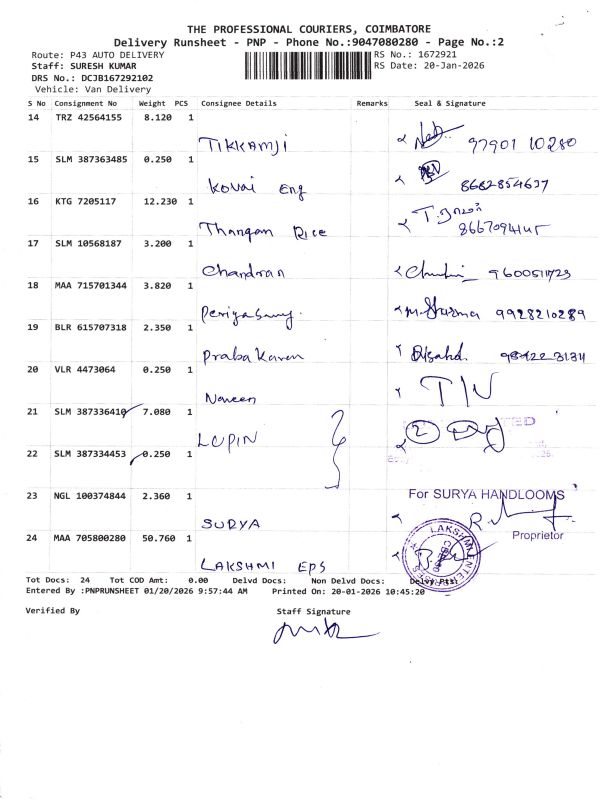 THE PROFESSIONAL COURIERS, COIMBATORE
Delivery Runsheet - PNP - Phone No.:9047080280 - Page No.:2
Route: P43 AUTO DELIVERY RS No.: 1672921
Staff: SURESH KUMAR RS Date: 20-Jan-2026
DRS No.: DCJB167292102
Vehicle: Van Delivery
S No Consignment No Weight PCS Consignee Details Remarks Seal & Signature
14 TRZ 42564155 8.120 1
TIKKAMJI 97901 10280
15 SLM 387363485 0.250 1
Kovai Eng 8682854637
16 KTG 7205117 12.230 1
Thangam Rice
17 SLM 10568187 3.200 1
Chandran 9600511723
18 MAA 715701344 3.820 1
Periyasamy. M. Sharma 9928210289
19 BLR 615707318 2.350 1
Prabakaran
20 VLR 4473064 0.250 1
Naveen
21 SLM 387336410 7.080 1
LUPIN 2
22 SLM 387334453 0.250 1
23 NGL 100374844 2.360 1
For SURYA HANDLOOMS
SURYA
Proprietor
24 MAA 705800280 50.760 1
LAKSHMI EPS
Tot Docs: 24 Tot COD Amt: 0.00 Delvd Docs: Non Delvd Docs: Delvy Pts:
Entered By :PNPRUNSHEET 01/20/2026 9:57:44 AM Printed On: 20-01-2026 10:45:20
Verified By Staff Signature